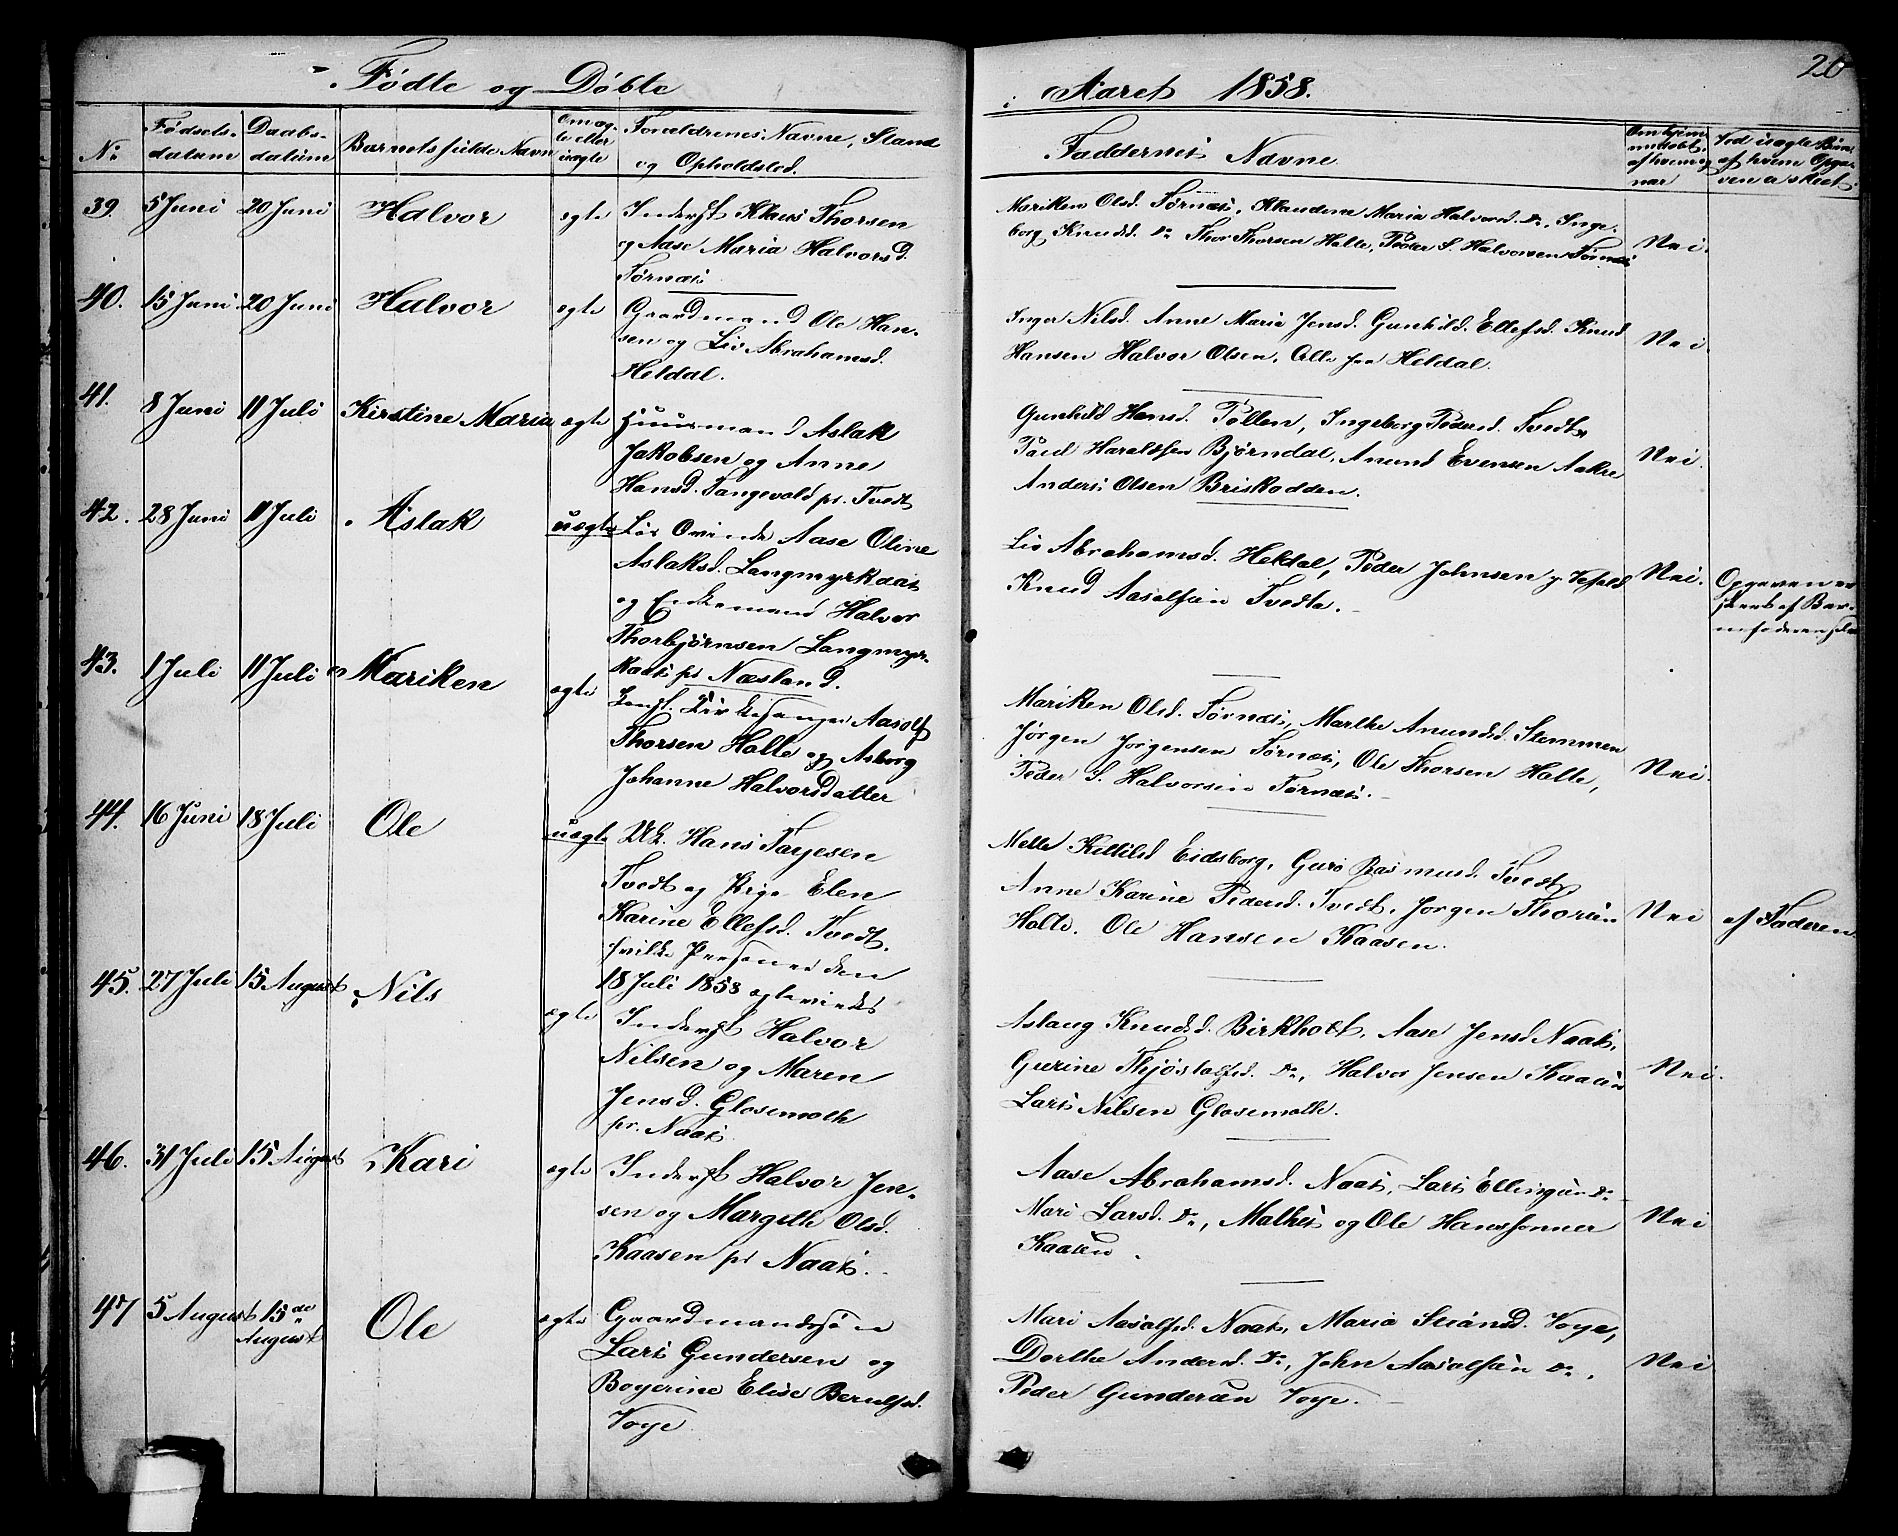 Fødte og Døbte
i Aaret 1858.
20
No
Fødsels-
datum
Daabs-
datum
Barnets fulde Navn
Om æg-
te eller
uægte
Forældrenes Navne, Stand
og Opholdsted.
Faddernes Navne
Om hjem
medøbt,
af hvem og
naar
Ved uægte Børn
af hvem Opga-
ven er skeet.
39. 5 Juni 20 Juni Halvor ægte Inderst Klaus Thorsen
og Aase Maria Halvorsd.
Tørnæs
Mariken Olsd. Tørnæs, Klaudene Maria Halvorsd. Do, Inge-
borg Knudsd. Do Thor Thorsen Holte, Peder S. Halvorsen Tørnæs
Nei.
40. 15 Juni 20 Juni Halvor ægte Gaardmand Ole Han-
sen og Liv Abrahamsd.
Heldal.
Inger Nilsd. Anne Maria Jensd. Gunhild Ellefsd. Knud
Hansen Halvor Olsen, Alle fra Heldal.
Nei.
41. 8 Juni 11 Juli Kirstine Maria ægte Huusmand Aslak
Jakobsen og Anne
Hansd. Tangevald pr. Tvedt
Gunhild Hansd. Tollen, Ingeborg Pedersd. Tvedt,
Poul Haraldsen Bjørndal, Anund Evensen Aakre
Anders Olsen Briskodden.
Nei.
42. 28 Juni 11 Juli Aslak uægte Løs Qvinde Aase Oline
Aslaksd. Langmyrkaas
og Enkemand Halvor
Thorbjørnsen Langmyr-
kaas pr Næsland.
Liv Abrahamsd. Heldal, Peder Johnsen
Knud Aasolfsen Tvedte.
Nei.
Opgaven er
skeet af Bar-
nefaderen selv
43. 1 Juli 11 Juli Mariken ægte Kirkesanger Aasolf
Thorsen Holte og Asborg
Johanne Halvorsdatter
Mariken Olsd. Tørnæs, Marthe Anundsd. Stemmen
Jörgen Jörgensen Tørnæs, Ole Thorsen Holte,
Peder S. Halvorsen Tørnæs.
Nei.
44. 16 Juni 18 Juli Ole uægte Uk. Hans Tarjesen
Tvedt og Pige Elen
Karine Ellefsd. Tvedt.
hvilke Personer den
18 Juli 1858 egtevieds
Melle Kittilsd Eidsborg, Guro Rasmusd. Tvedt,
Anne Karine Pedersd. Tvedt, Jorgen Thorsen
Holte. Ole Hansen Kaasen.
Nei
af Faderen.
45. 27 Juli 15 August Nils ægte Inderst Halvor
Nilsen og Maren
Jensd. Glosemoth
pr. Naas.
Aslaug Knudsd. Birkholt, Aase Jensd Naas,
Gurine Thjostolfsd. Do, Halvor Jensen Kaasen
Lars Nilsen Glosemolte.
Nei.
46. 31 Juli 15 August Kari ægte Inderst Halvor Jen-
sen og Margethe Olsd.
Kaasen pr Naas.
Aase Abrahamsd. Naas, Lars Ellingsen Do
Mari Larsd. Do, Mathes og Ole Hanssønner
Kaasen.
Nei
47 5 August 15de August Ole ægte Gaardmandssøn
Lars Gundersen og
Boyerine Elise Berulfsd.
Voje
Mari Aasolfsd. Naas, Maria Svensd. Voje,
Dorthe Andersd. Do, John Aasolfsen Do,
Peder Gundersen Voje.
Nei